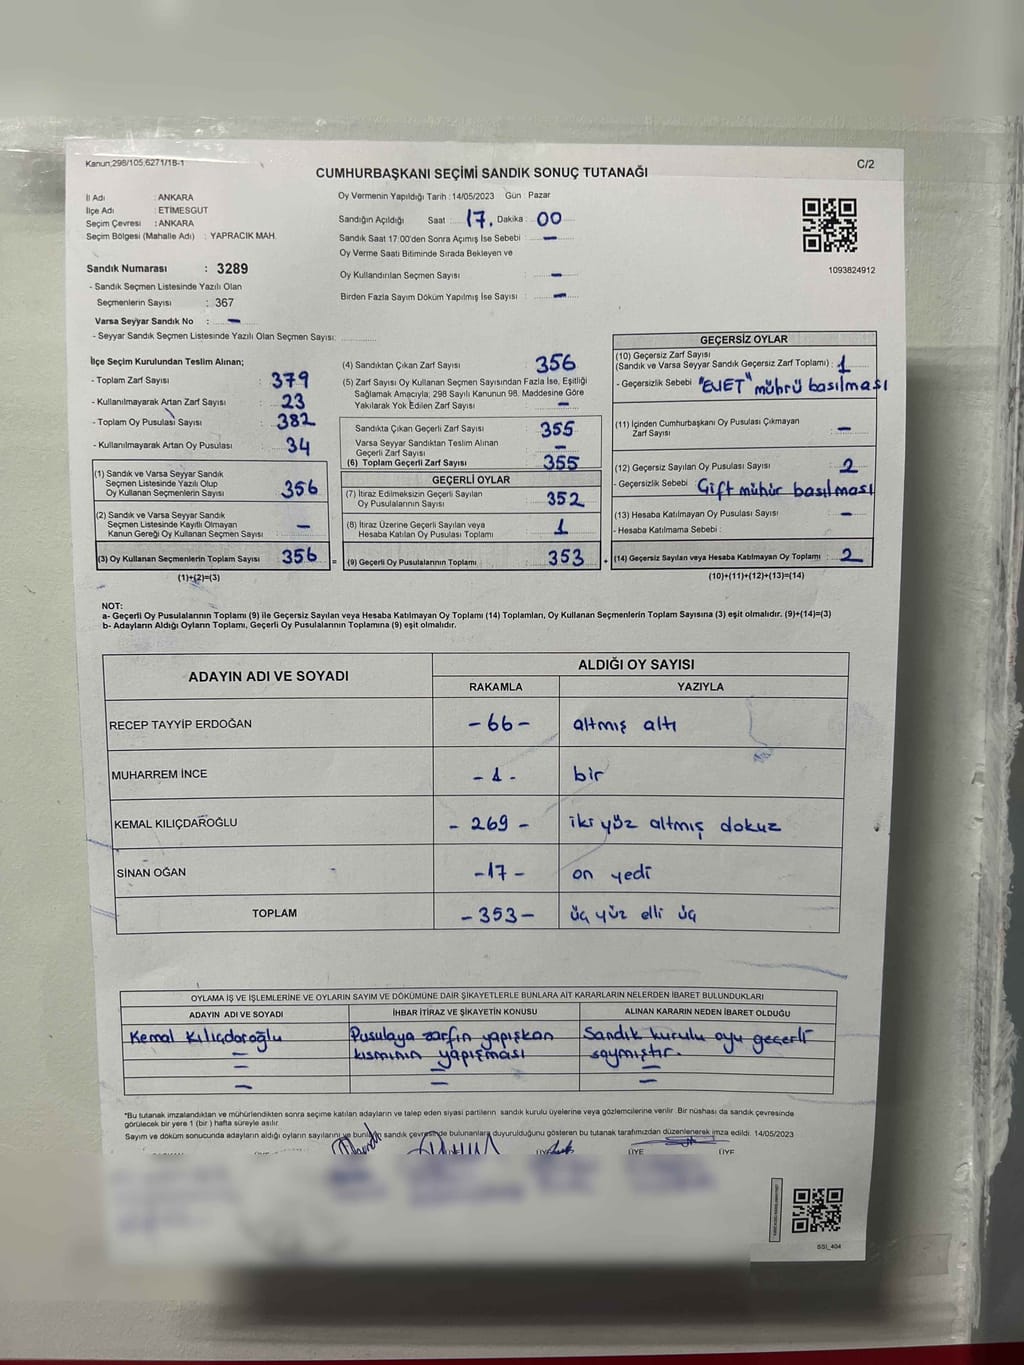 Kanun,298/105,6271/18-1
C/2
CUMHURBAŞKANI SEÇİMİ SANDIK SONUÇ TUTANAĞI
İl Adı : ANKARA
İlçe Adı : ETİMESGUT
Seçim Çevresi : ANKARA
Seçim Bölgesi (Mahalle Adı) : YAPRACIK MAH.
Sandık Numarası : 3289
- Sandık Seçmen Listesinde Yazılı Olan
Seçmenlerin Sayısı : 367
Varsa Seyyar Sandık No : –
- Seyyar Sandık Seçmen Listesinde Yazılı Olan Seçmen Sayısı:
Oy Vermenin Yapıldığı Tarih : 14/05/2023 Gün : Pazar
Sandığın Açıldığı Saat : 17. Dakika : 00
Sandık Saat 17:00'den Sonra Açılmış İse Sebebi : –
Oy Verme Saati Bitiminde Sırada Bekleyen ve
Oy Kullandırılan Seçmen Sayısı : –
Birden Fazla Sayım Döküm Yapılmış İse Sayısı : –
1093824912
İlçe Seçim Kurulundan Teslim Alınan;
- Toplam Zarf Sayısı : 379
- Kullanılmayarak Artan Zarf Sayısı : 23
- Toplam Oy Pusulası Sayısı : 382
- Kullanılmayarak Artan Oy Pusulası : 34
(1) Sandık ve Varsa Seyyar Sandık
Seçmen Listesinde Yazılı Olup
Oy Kullanan Seçmenlerin Sayısı : 356
(2) Sandık ve Varsa Seyyar Sandık
Seçmen Listesinde Kayıtlı Olmayan
Kanun Gereği Oy Kullanan Seçmen Sayısı : –
(3) Oy Kullanan Seçmenlerin Toplam Sayısı : 356
(1)+(2)=(3)
(4) Sandıktan Çıkan Zarf Sayısı : 356
(5) Zarf Sayısı Oy Kullanan Seçmen Sayısından Fazla İse, Eşitliği
Sağlamak Amacıyla; 298 Sayılı Kanunun 98. Maddesine Göre
Yakılarak Yok Edilen Zarf Sayısı : –
Sandıkta Çıkan Geçerli Zarf Sayısı : 355
Varsa Seyyar Sandıktan Teslim Alınan
Geçerli Zarf Sayısı : –
(6) Toplam Geçerli Zarf Sayısı : 355
GEÇERLİ OYLAR
(7) İtiraz Edilmeksizin Geçerli Sayılan
Oy Pusulasının Sayısı : 352
(8) İtiraz Üzerine Geçerli Sayılan veya
Hesaba Katılan Oy Pusulası Toplamı : 1
= (9) Geçerli Oy Pusulalarının Toplamı : 353
GEÇERSİZ OYLAR
(10) Geçersiz Zarf Sayısı
(Sandık ve Varsa Seyyar Sandık Geçersiz Zarf Toplamı) : 1
- Geçersizlik Sebebi : "EVET" mührü basılması
(11) İçinden Cumhurbaşkanı Oy Pusulası Çıkmayan
Zarf Sayısı : –
(12) Geçersiz Sayılan Oy Pusulası Sayısı : 2
- Geçersizlik Sebebi : Çift mühür basılması
(13) Hesaba Katılmayan Oy Pusulası Sayısı : –
- Hesaba Katılmama Sebebi :
+ (14) Geçersiz Sayılan veya Hesaba Katılmayan Oy Toplamı : 2
(10)+(11)+(12)+(13)=(14)
NOT:
a- Geçerli Oy Pusulalarının Toplamı (9) ile Geçersiz Sayılan veya Hesaba Katılmayan Oy Toplamı (14) Toplamları, Oy Kullanan Seçmenlerin Toplam Sayısına (3) eşit olmalıdır. (9)+(14)=(3)
b- Adayların Aldığı Oyların Toplamı, Geçerli Oy Pusulalarının Toplamına (9) eşit olmalıdır.
ADAYIN ADI VE SOYADI
ALDIĞI OY SAYISI
RAKAMLA YAZIYLA
RECEP TAYYİP ERDOĞAN - 66 - altmış altı
MUHARREM İNCE - 1 - bir
KEMAL KILIÇDAROĞLU - 269 - iki yüz altmış dokuz
SİNAN OĞAN - 17 - on yedi
TOPLAM - 353 - üç yüz elli üç
OYLAMA İŞ VE İŞLEMLERİNE VE OYLARIN SAYIM VE DÖKÜMÜNE DAİR ŞİKAYETLERLE BUNLARA AİT KARARLARIN NELERDEN İBARET BULUNDUKLARI
ADAYIN ADI VE SOYADI İHBAR İTİRAZ VE ŞİKAYETİN KONUSU ALINAN KARARIN NEDEN İBARET OLDUĞU
Kemal Kılıçdaroğlu Pusulaya zarfın yapışkan Sandık kurulu oyu geçerli
– kısmının yapışması saymıştır.
– – –
– – –
*Bu tutanak imzalandıktan ve mühürlendikten sonra seçime katılan adayların ve talep eden siyasi partilerin sandık kurulu üyelerine veya gözlemcilerine verilir. Bir nüshası da sandık çevresinde
görülecek bir yere 1 (bir) hafta süreyle asılır.
Sayım ve döküm sonucunda adayların aldığı oyların sayılarını ve bunların sandık çevresinde bulunanlara duyurulduğunu gösteren bu tutanak tarafımızdan düzenlenerek imza edildi. 14/05/2023
ÜYE ÜYE ÜYE
SSI_404